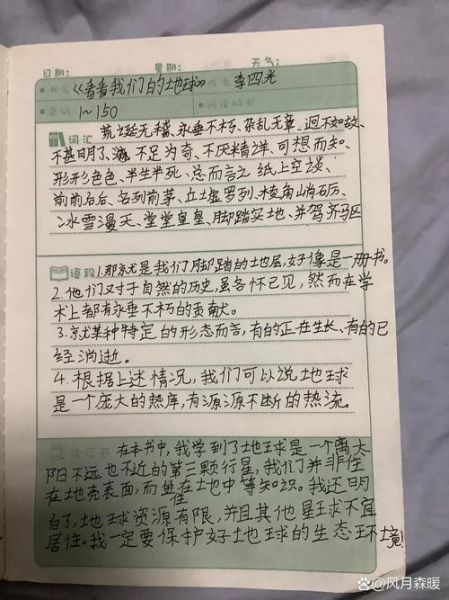 日期： 星期： 天气：
书名《看看我们的地球》 作者 李四光
页码 1~150 阅读时长
词汇 荒诞无稽、永垂不朽、杂乱无章、迥不如故、
不甚明了、不足为奇、不厌精详、可想而知、
形形色色、半生半死、总而言之、纸上空谈、
前前后后、名列前茅、立土虚罗列、棱角峭厉、
冰雪漫天、堂堂皇皇、脚踏实地、并驾齐驱
语段 1.那就是我们脚踏的地层，好像是一册书。
2.他们对于自然的历史，虽各怀己见，然而在学
术上都有永垂不朽的贡献。
3.就某种特定的形态而言，有的正在生长、有的已
经消逝。
4.根据上述情况，我们可以说地球
是一个庞大的热库，有源源不断的热流。
读后感 在本书中，我学到了地球是一个离太
阳不远也不近的第三颗行星，我们并非住
在地壳表面，而是住在地中等知识。我还明
白了，地球资源有限，并且其他星球不宜
居住。我一定要保护好地球的生态环境！
@风月森暖